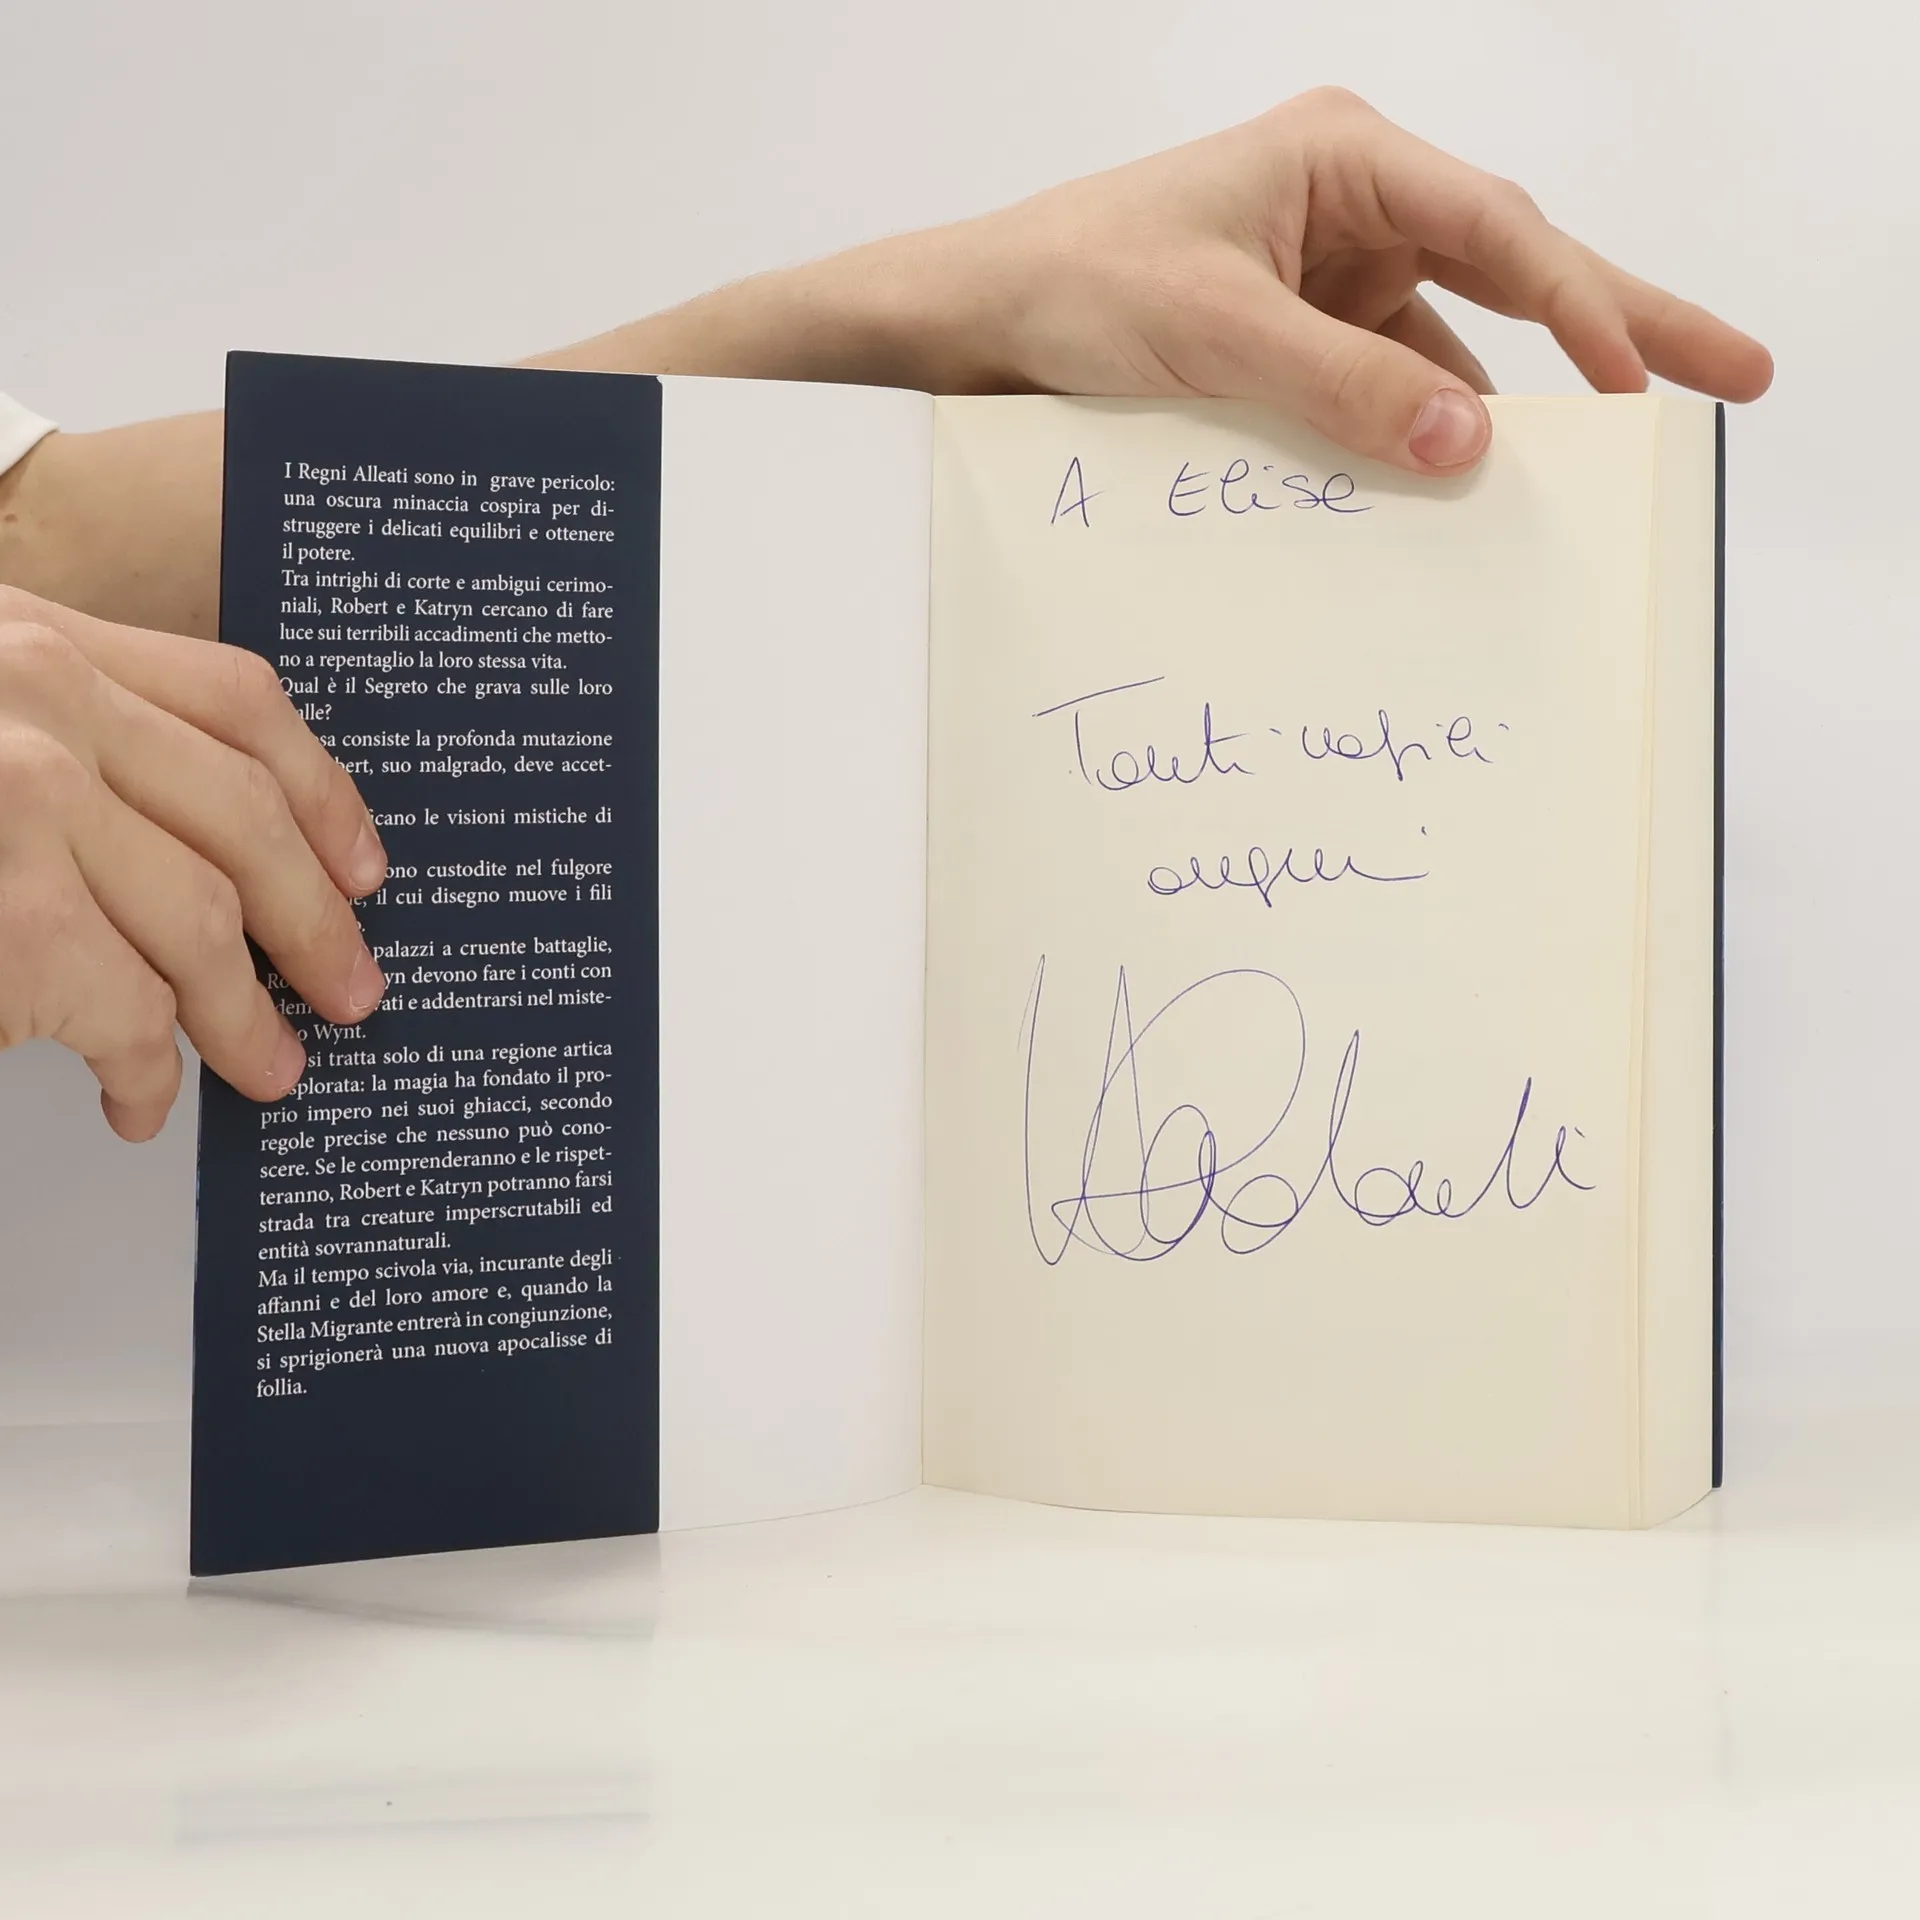 I Regni Alleati sono in grave pericolo:
una oscura minaccia cospira per di-
struggere i delicati equilibri e ottenere
il potere.
Tra intrighi di corte e ambigui cerimo-
niali, Robert e Katryn cercano di fare
luce sui terribili accadimenti che metto-
no a repentaglio la loro stessa vita.
Qual è il Segreto che grava sulle loro
alle?
sa consiste la profonda mutazione
bert, suo malgrado, deve accet-
icano le visioni mistiche di
ono custodite nel fulgore
e, il cui disegno muove i fili
palazzi a cruente battaglie,
Ro yn devono fare i conti con
dem vati e addentrarsi nel miste-
o Wynt.
si tratta solo di una regione artica
splorata: la magia ha fondato il pro-
prio impero nei suoi ghiacci, secondo
regole precise che nessuno può cono-
scere. Se le comprenderanno e le rispet-
teranno, Robert e Katryn potranno farsi
strada tra creature imperscrutabili ed
entità sovrannaturali.
Ma il tempo scivola via, incurante degli
affanni e del loro amore e, quando la
Stella Migrante entrerà in congiunzione,
si sprigionerà una nuova apocalisse di
follia.
A Elise
Tanti
auguri